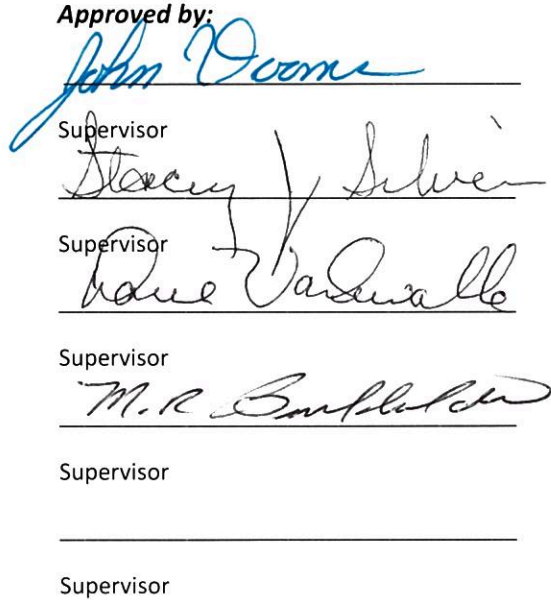 Approved by:
John Vooms
Supervisor
Stacey J Silver
Supervisor
Supervisor
M.R
Supervisor
Supervisor